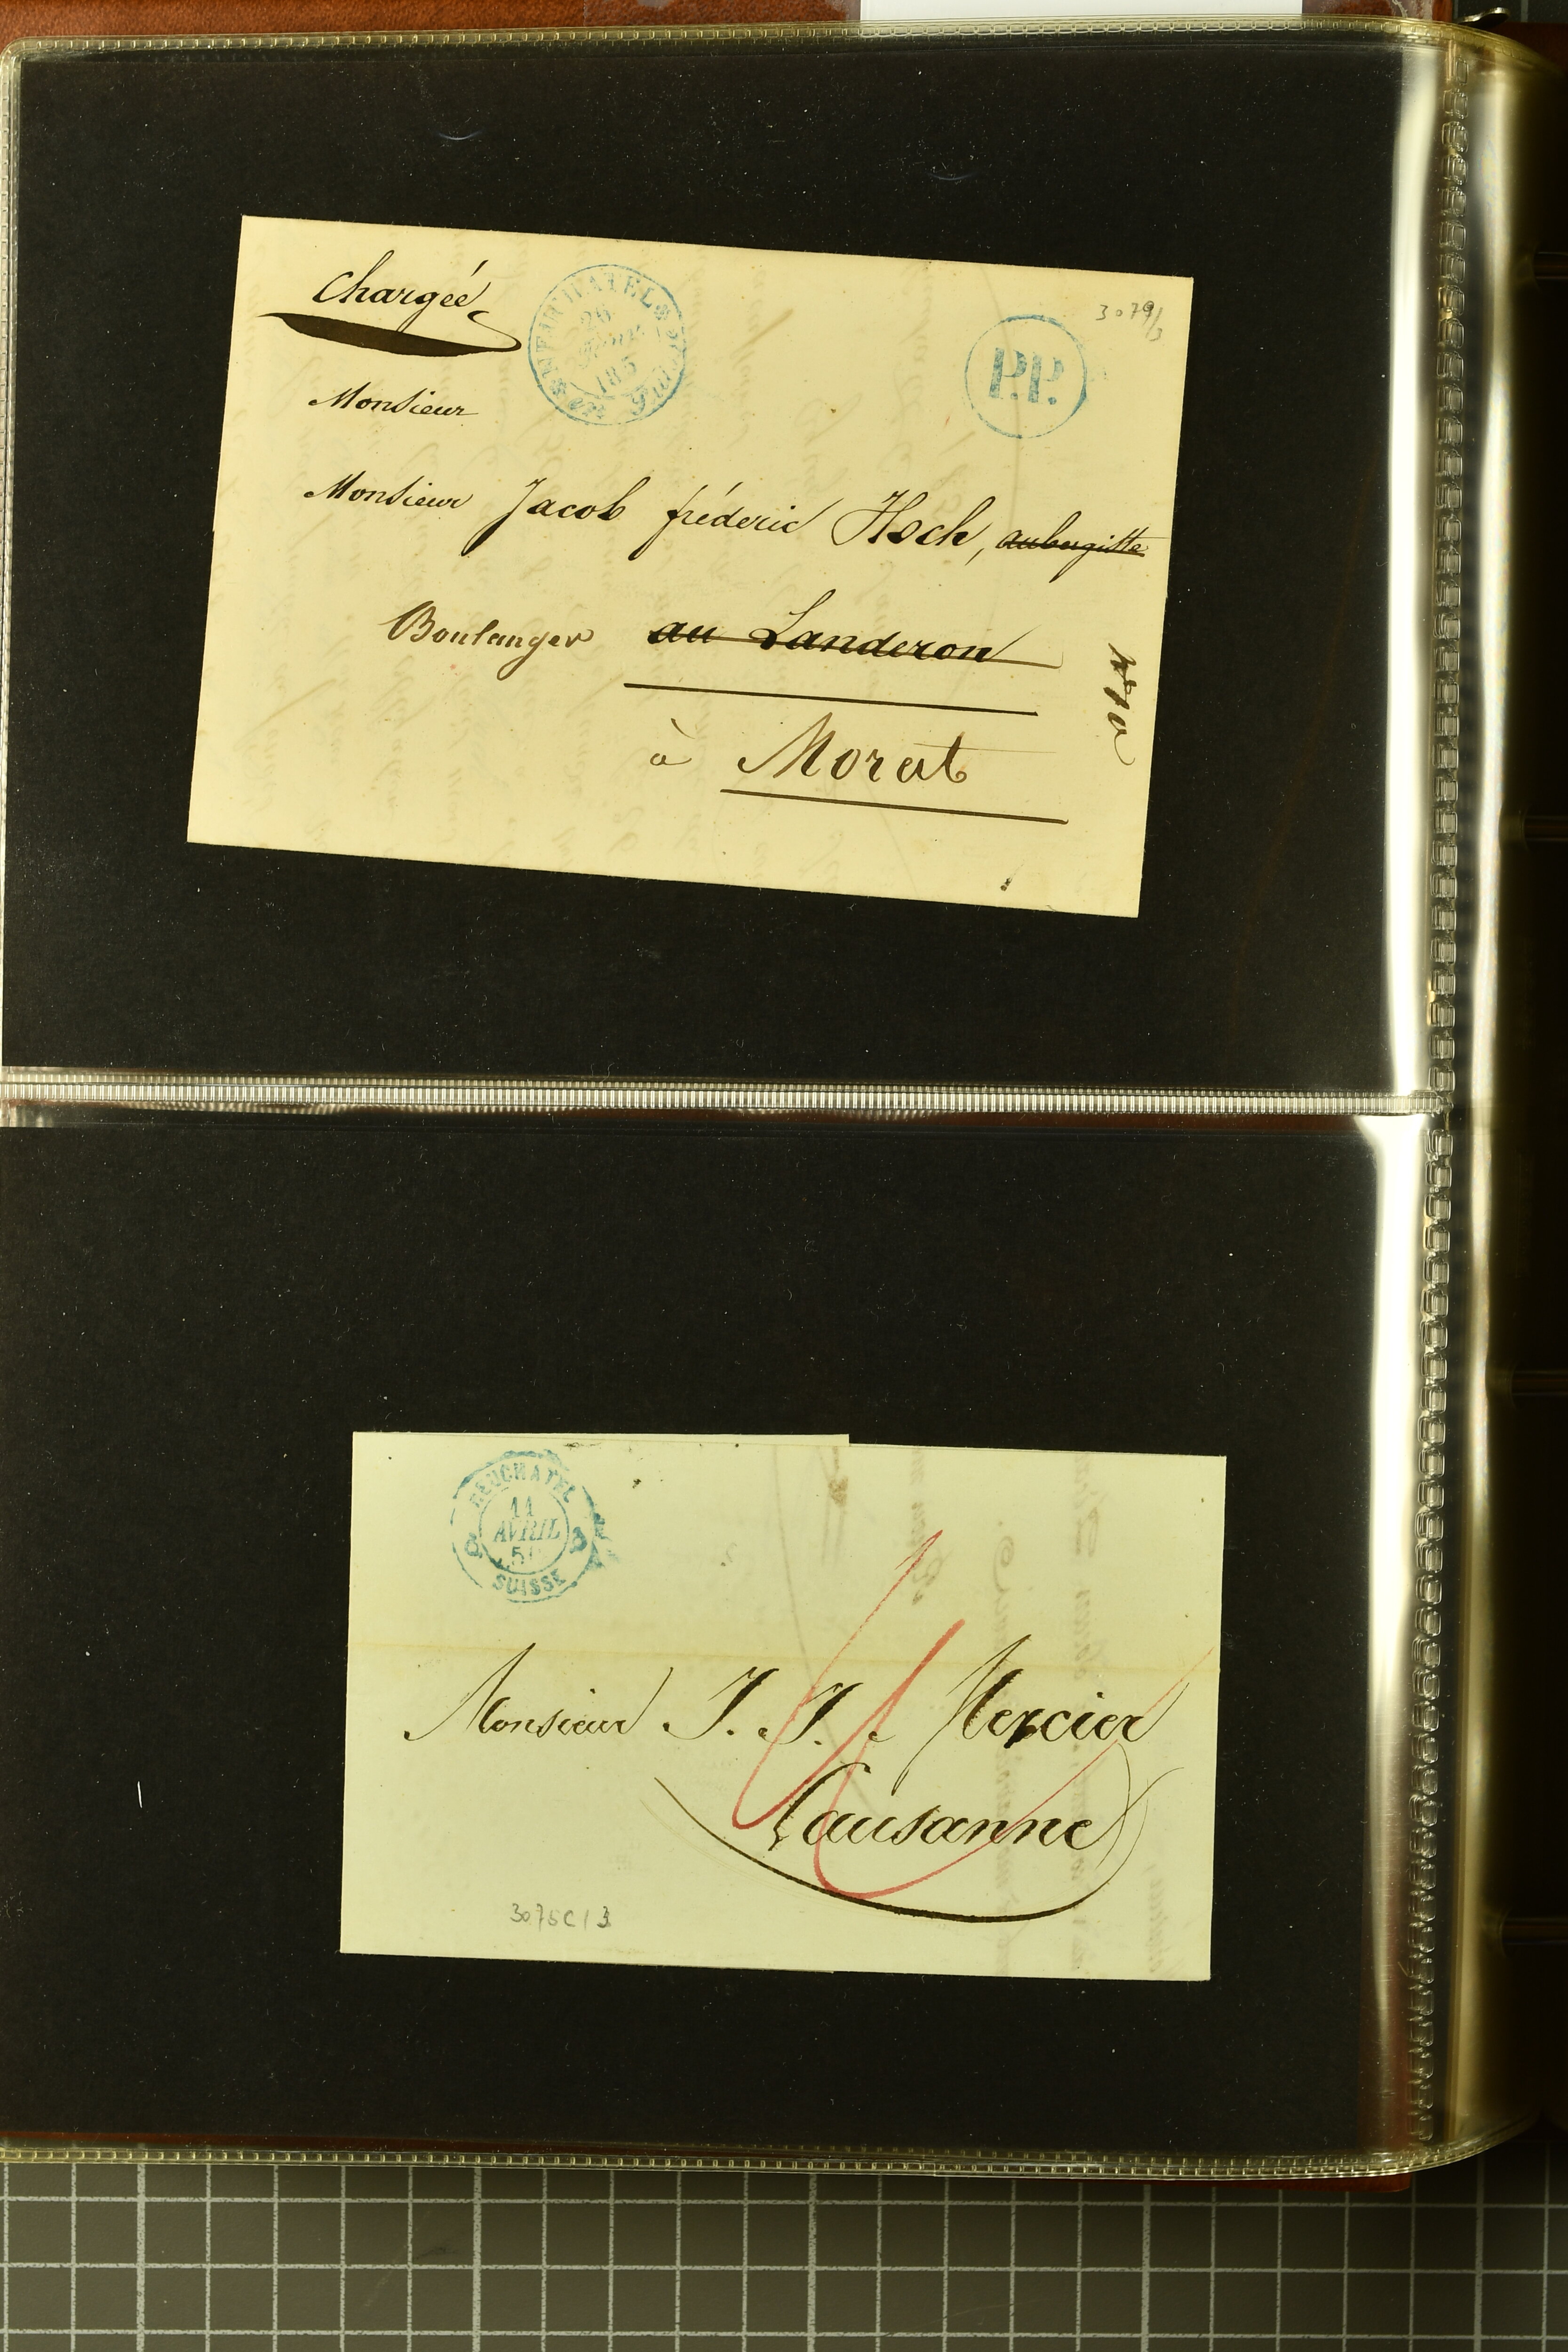 Chargéé
NEUCHATEL
26
185
P.P.
3079/3
Monsieur
Monsieur Jacob fréderic Hsch, aubergiste
Boulanger au Landeron
à Morat
NEUCHATEL
11
AVRIL
50
SUISSE
Monsieur J. J. Mercier
Lausanne
3075C/3